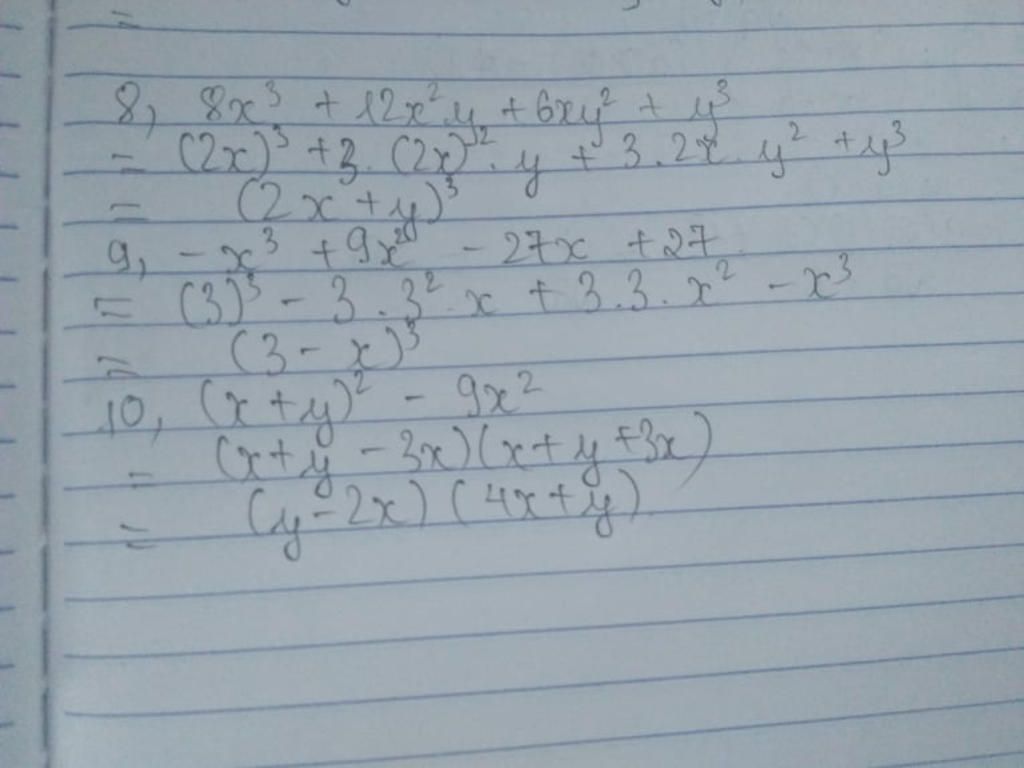 =
8, 8x³ + 12x²y + 6xy² + y³
= (2x)³ + 3. (2x)². y + 3.2x. y² + y³
= (2x + y)³
9, - x³ + 9x² - 27x + 27
= (3)³ - 3 . 3². x + 3.3. x² - x³
= (3 - x)³
10, (x + y)² - 9x²
= (x + y - 3x)(x + y + 3x)
= (y - 2x) (4x + y)